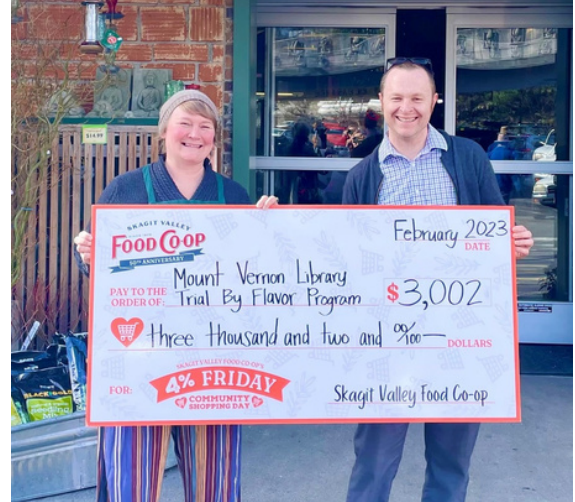 $14.99
SKAGIT VALLEY
FOOD CO-OP
50TH ANNIVERSARY
February 2023
DATE
PAY TO THE
ORDER OF:
Mount Vernon Library
Trial By Flavor Program
$3,002
three thousand and two and 00/100
DOLLARS
FOR:
SKAGIT VALLEY FOOD CO-OP'S
4% FRIDAY
COMMUNITY
SHOPPING DAY
Skagit Valley Food Co-op